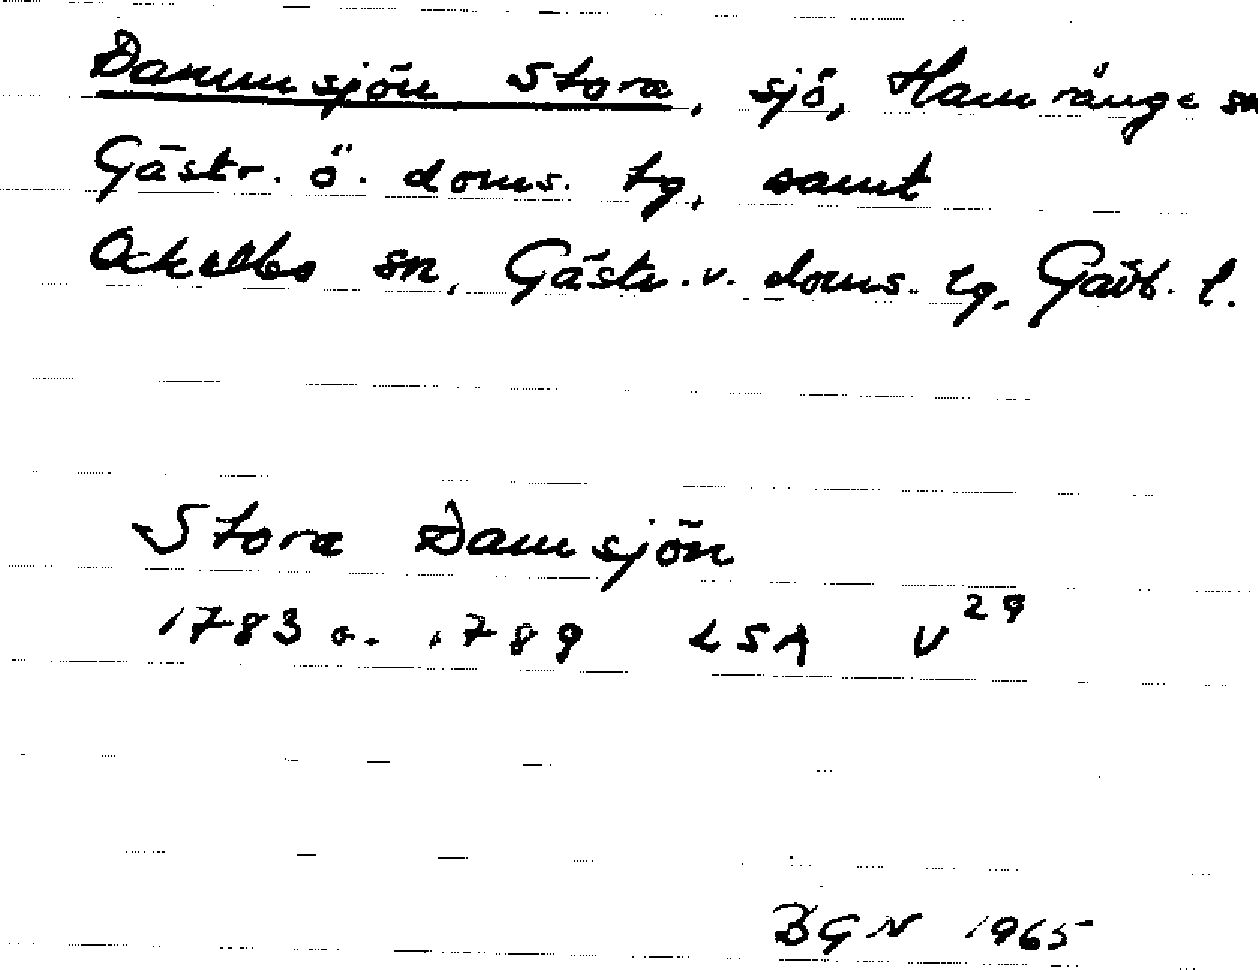 Dammsjön Stora, sjö, Hamrånge sn
Gästr. ö. doms. tg, samt
Ockelbo sn, Gästr. v. doms. tg, Gävb. l.
Stora Damsjön
1783 o. 1789 LSA V 29
BGN 1965